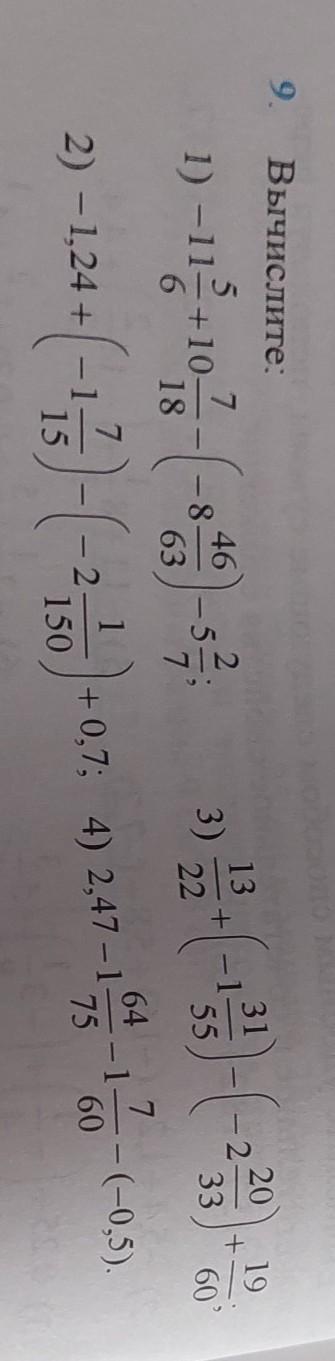 9. Вычислите:
1) −11 5/6 + 10 7/18 − (−8 46/63) − 5 2/7; 3) 13/22 + (−1 31/55) − (−2 20/33) + 19/60;
2) −1,24 + (−1 7/15) − (−2 1/150) + 0,7; 4) 2,47 − 1 64/75 − 1 7/60 − (−0,5).